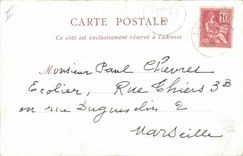 II
CARTE POSTALE
Ce côté est exclusivement réservé à l'adresse
10
Monsieur Paul Chevres
Ecolier, Rue Thiers 3B
ou rue Duguesclin 2
Marseille